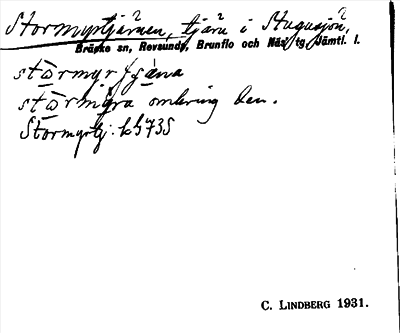 Stormyrtjärnen, tjärn i Stugusjön,
Bräcke sn, Revsunds, Brunflo och Näs tg, Jämtl. l.
stormyr
stormyra omkring den.
Stormyrtj.
C. LINDBERG 1931.